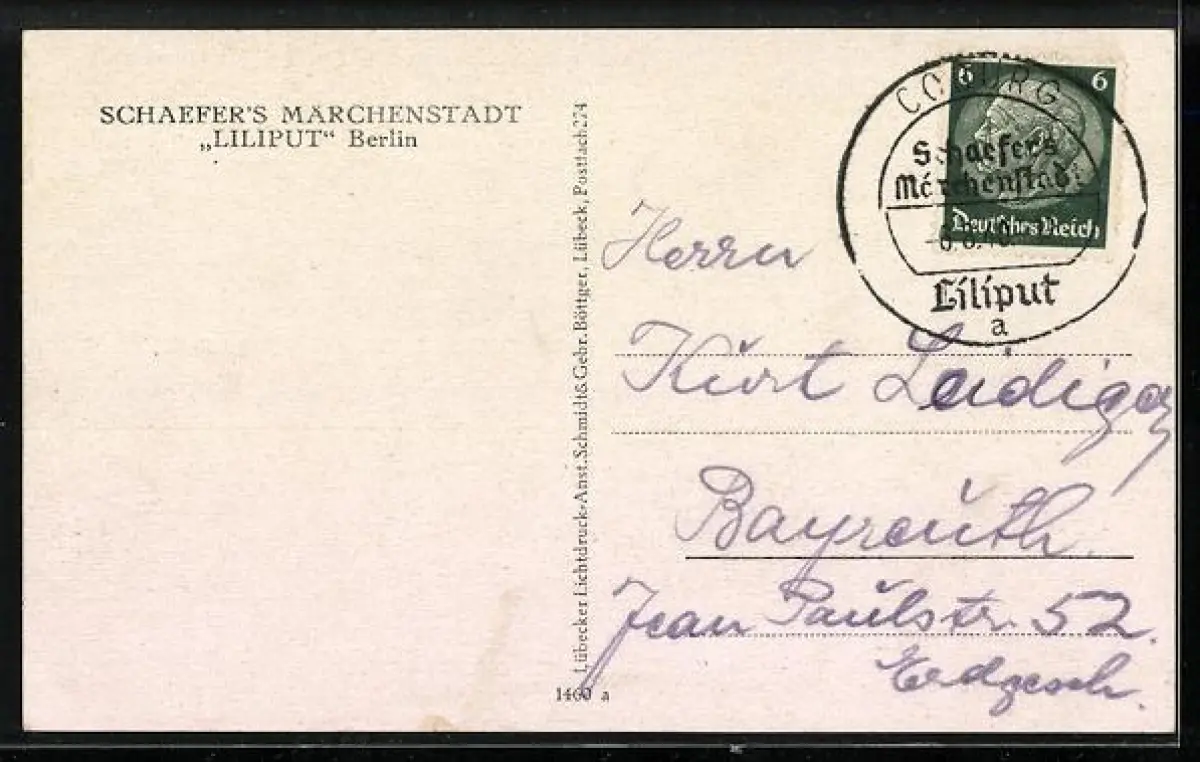 SCHAEFER'S MÄRCHENSTADT
„LILIPUT“ Berlin
Lübecker Lichtdruck-Anst. Schmidt & Gebr. Böttger, Lübeck, Postfach 274
1460 a
6 6
Deutsches Reich
COBURG
Schaefer's
Märchenstadt
Liliput
a
Herrn
Kurt
Bayreuth.
Jean Paulstr. 52.
Erdgesch.